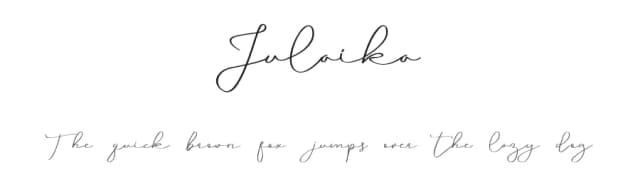 Juloika
The quick brown fox jumps over the lazy dog